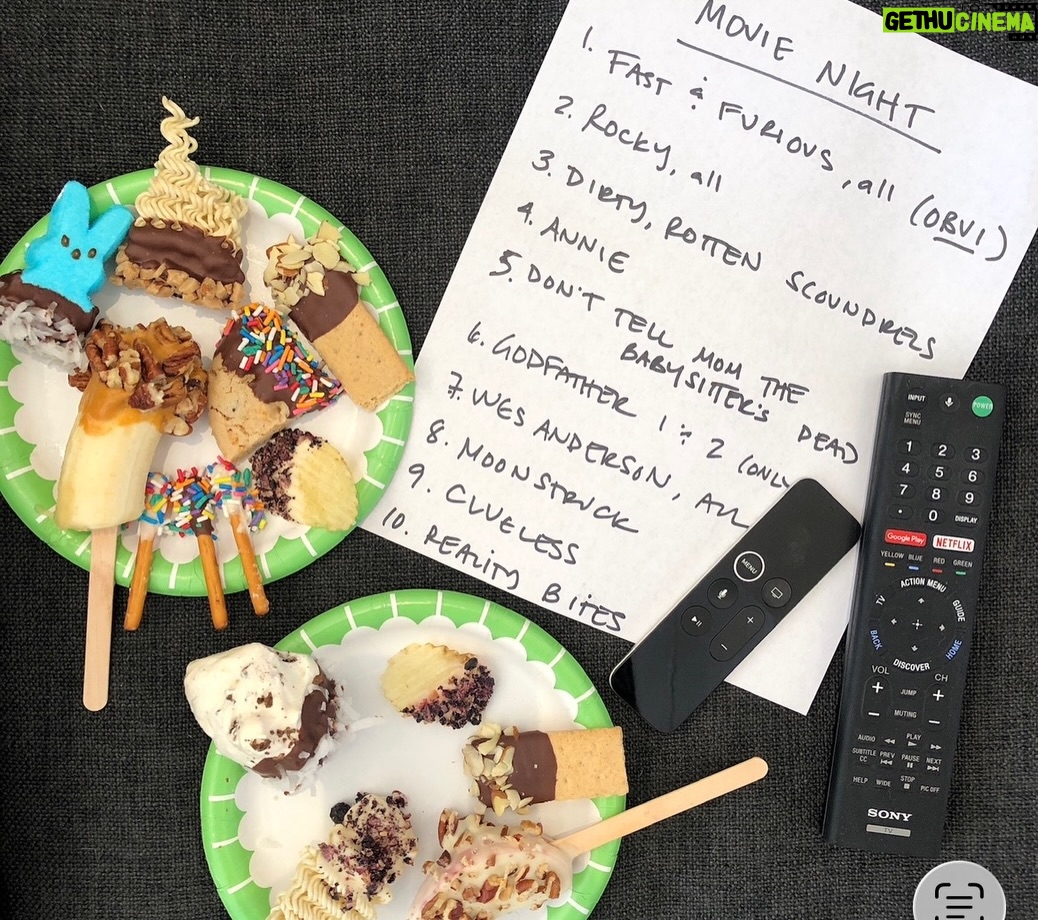 GETHUCINEMA
MOVIE NIGHT
1. FAST & FURIOUS, all (OBVI)
2. ROCKY, all
3. DIRTY, ROTTEN SCOUNDRELS
4. ANNIE
5. DON'T TELL MOM THE
BABYSITTER'S DEAD
6. GODFATHER 1 & 2 (ONLY
7. WES ANDERSON, ALL
8. MOONSTRUCK
9. CLUELESS
10. REALITY BITES
MENU
INPUT
POWER
SYNC
MENU
1 2 3
4 5 6
7 8 9
0 DISPLAY
Google Play NETFLIX
YELLOW BLUE RED GREEN
ACTION MENU
TV GUIDE
BACK HOME
DISCOVER
VOL CH
+ JUMP +
- MUTING -
AUDIO PLAY
SUBTITLE PREV PAUSE NEXT
CC
HELP WIDE STOP PIC OFF
SONY
TV